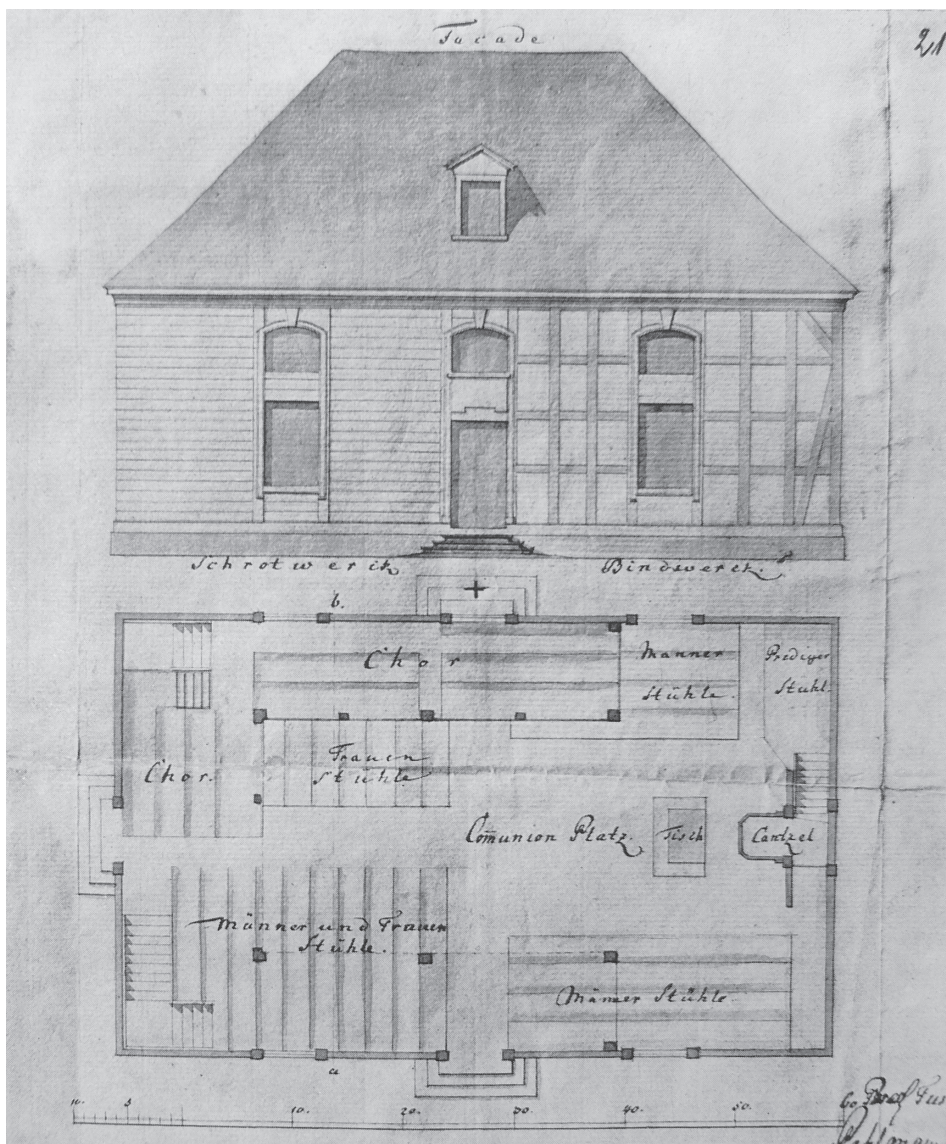 Facade
21
Schrotwerck
Bindwerck.
b.
Chor
Männer
Stühle.
Prediger
Stuhl.
Frauen
Stühle
Chor.
Com̄union Platz.
Tisch
Cantzel
Männer und Frauen
Stühle.
Männer Stühle.
a
10. 5 10. 20. 30. 40. 50. 60